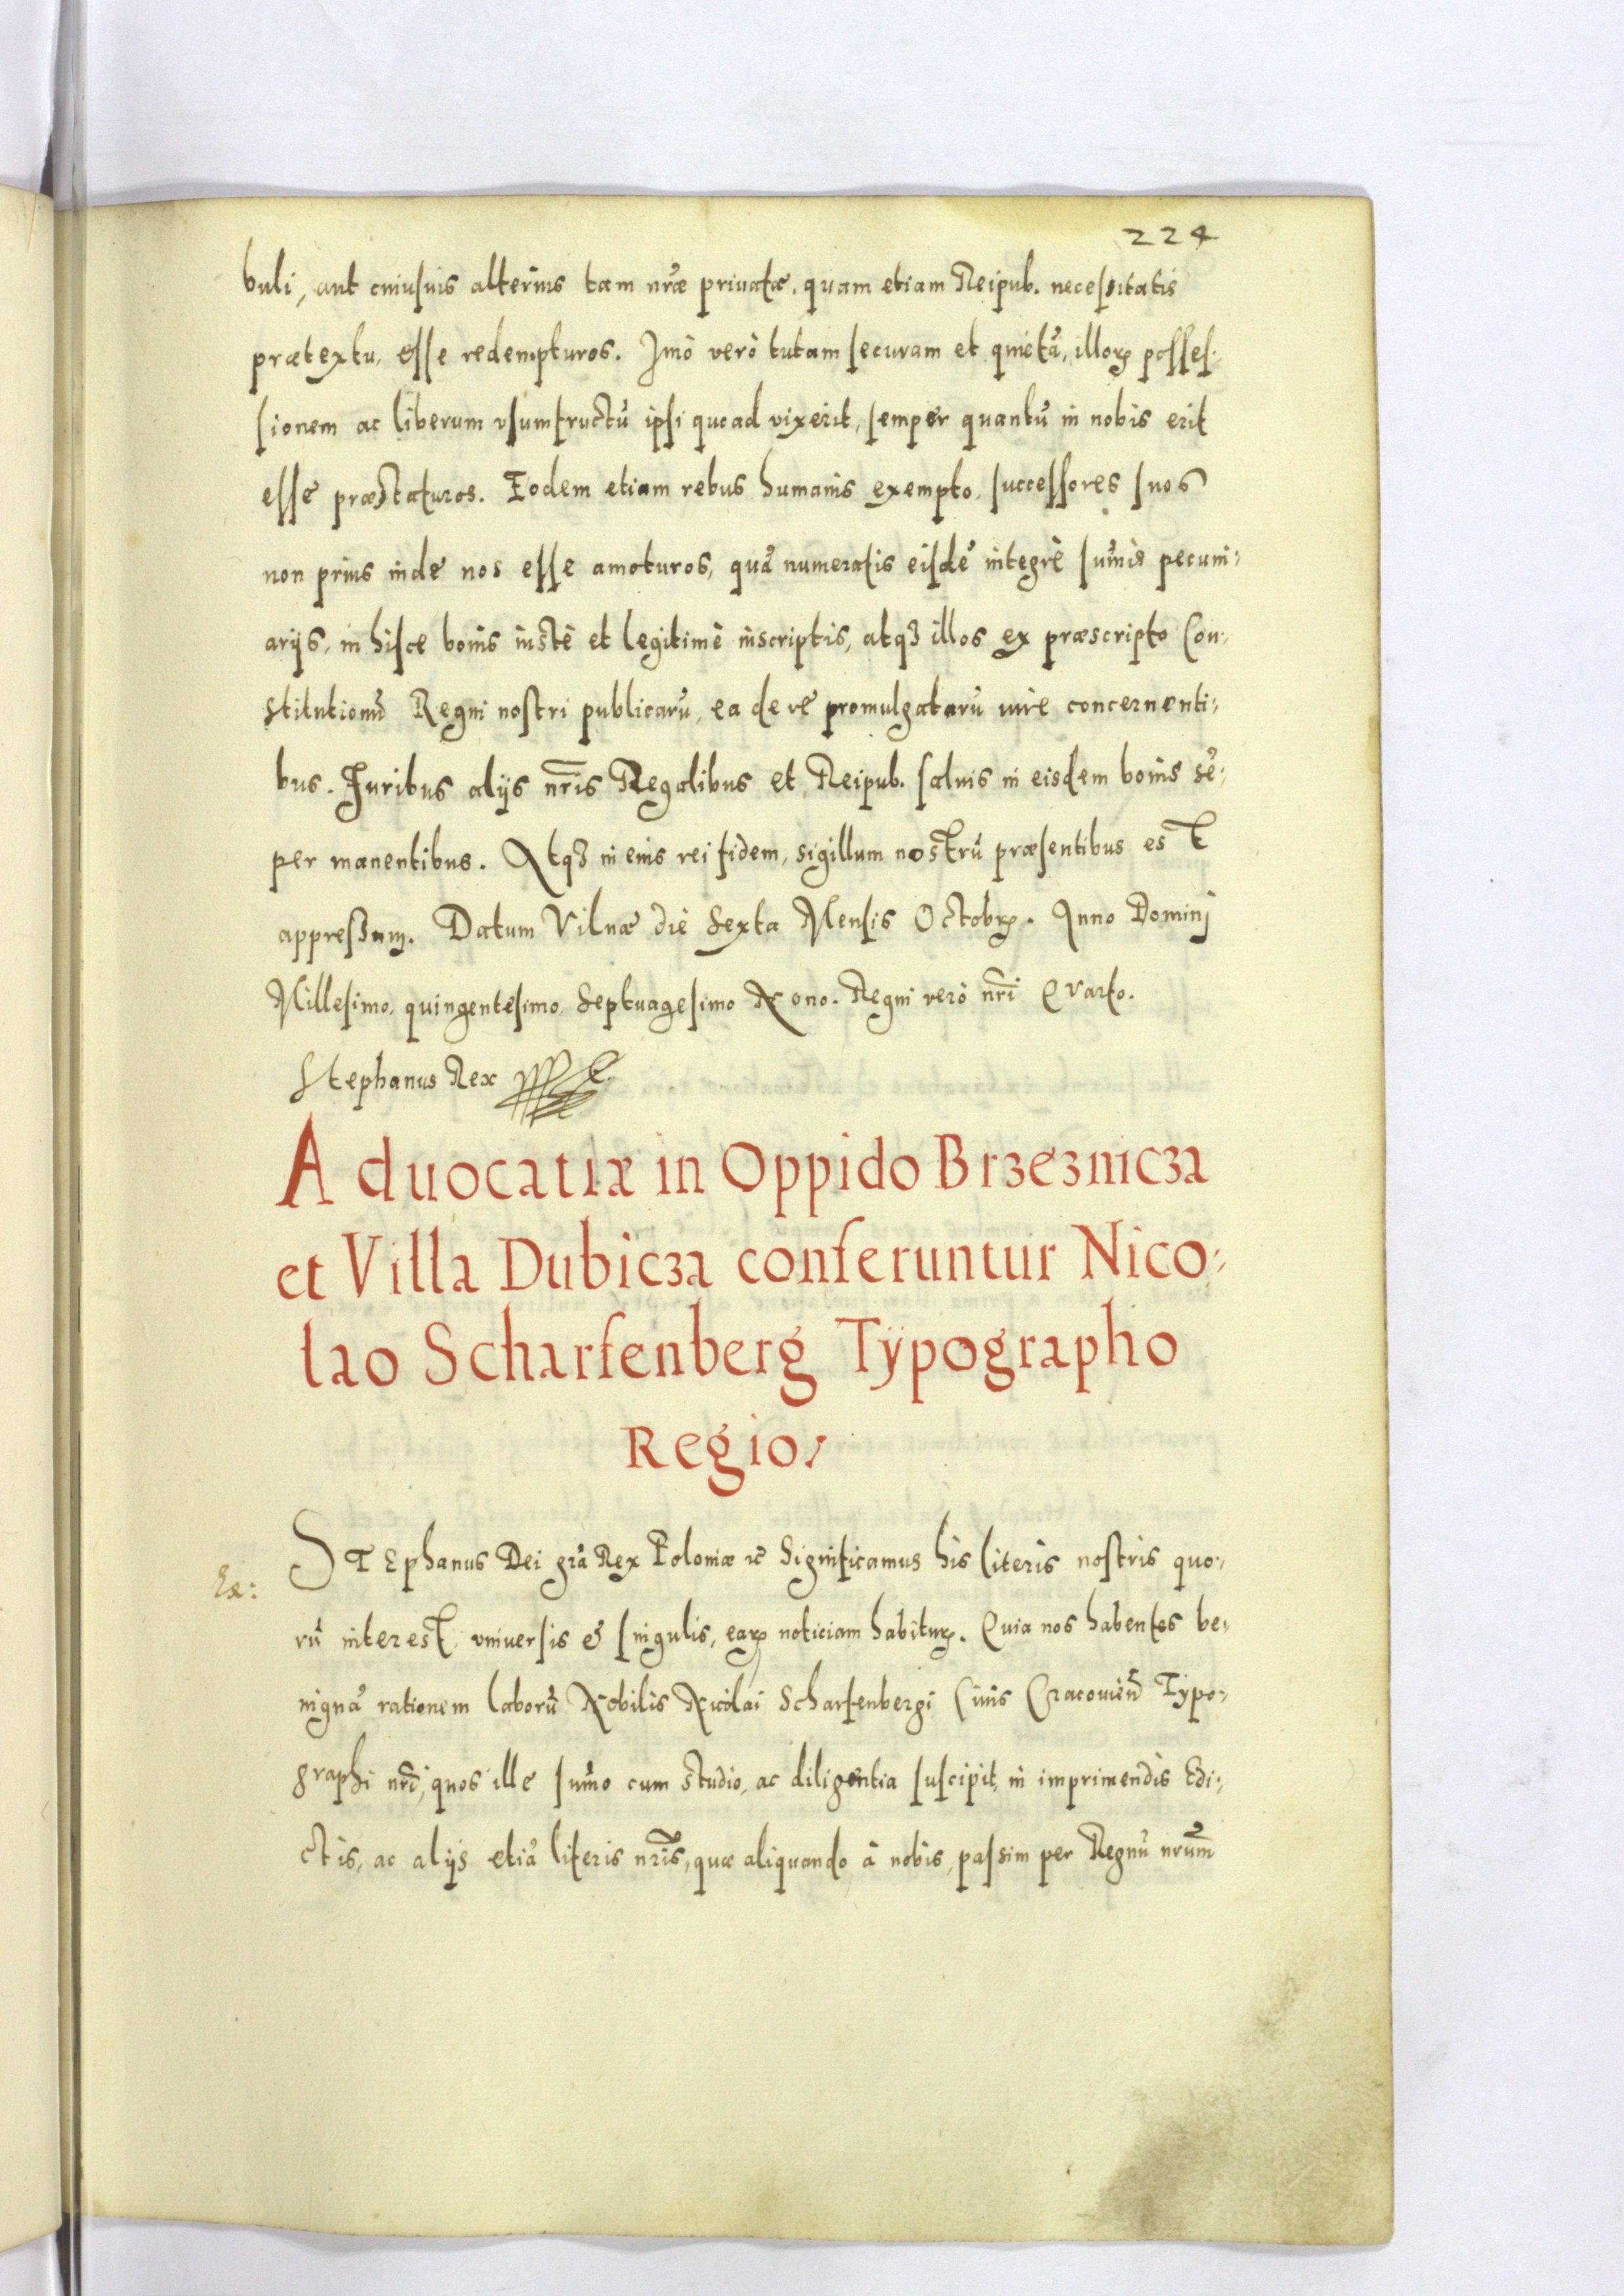 224
buli, aut cuiusuis alterius tam nr̃æ priuatæ, quam etiam Reipub. necessitatis
prætextu, esse redempturos. Imò verò tutam securam et quietã, illoꝝ posses:
sionem ac liberum vsumfructũ ipsi quoad vixerit, semper quantũ in nobis erit
esse præstaturos. Eodem etiam rebus humanis exempto, successores suos
non prius inde nos esse amoturos, quã numeratis eisdẽ integrè sum̃is pecuni:
arijs, in hisce bonis iustè et legitimè inscriptis, atqꝫ illos ex præscripto Con:
stitutionũ Regni nostri publicarũ, ea de re promulgatarũ iure concernenti:
bus. Iuribus alijs nr̃is Regalibus et Reipub. saluis in eisdem bonis sẽ:
per manentibus. Atqꝫ in eius rei fidem, sigillum nostrũ præsentibus est
appressum. Datum Vilnæ die Sexta Mensis Octobꝝ. Anno Dominj
Millesimo, quingentesimo, Septuagesimo Nono. Regni verò nr̃i Quarto.
Stephanus Rex
Aduocatiæ in Oppido Brzeznicza
et Villa Dubicza conferuntur Nico:
lao Scharfenberg Typographo
Regio.
Ex:
STEphanus Dei grã Rex Poloniæ ꝛc̃ Significamus his literis nostris quo:
rũ interest, vniuersis & singulis, eaꝝ noticiam habituꝝ. Quia nos habentes be:
nignã rationem laborũ Nobilis Nicolai Scharfenbergi Ciuis Cracouieñ Typo:
graphi nr̃i, quos ille sum̃o cum studio, ac diligentia suscipit, in imprimendis Edi:
ctis, ac alijs etiã literis nr̃is, quæ aliquando à nobis, passim per Regnũ nr̃um